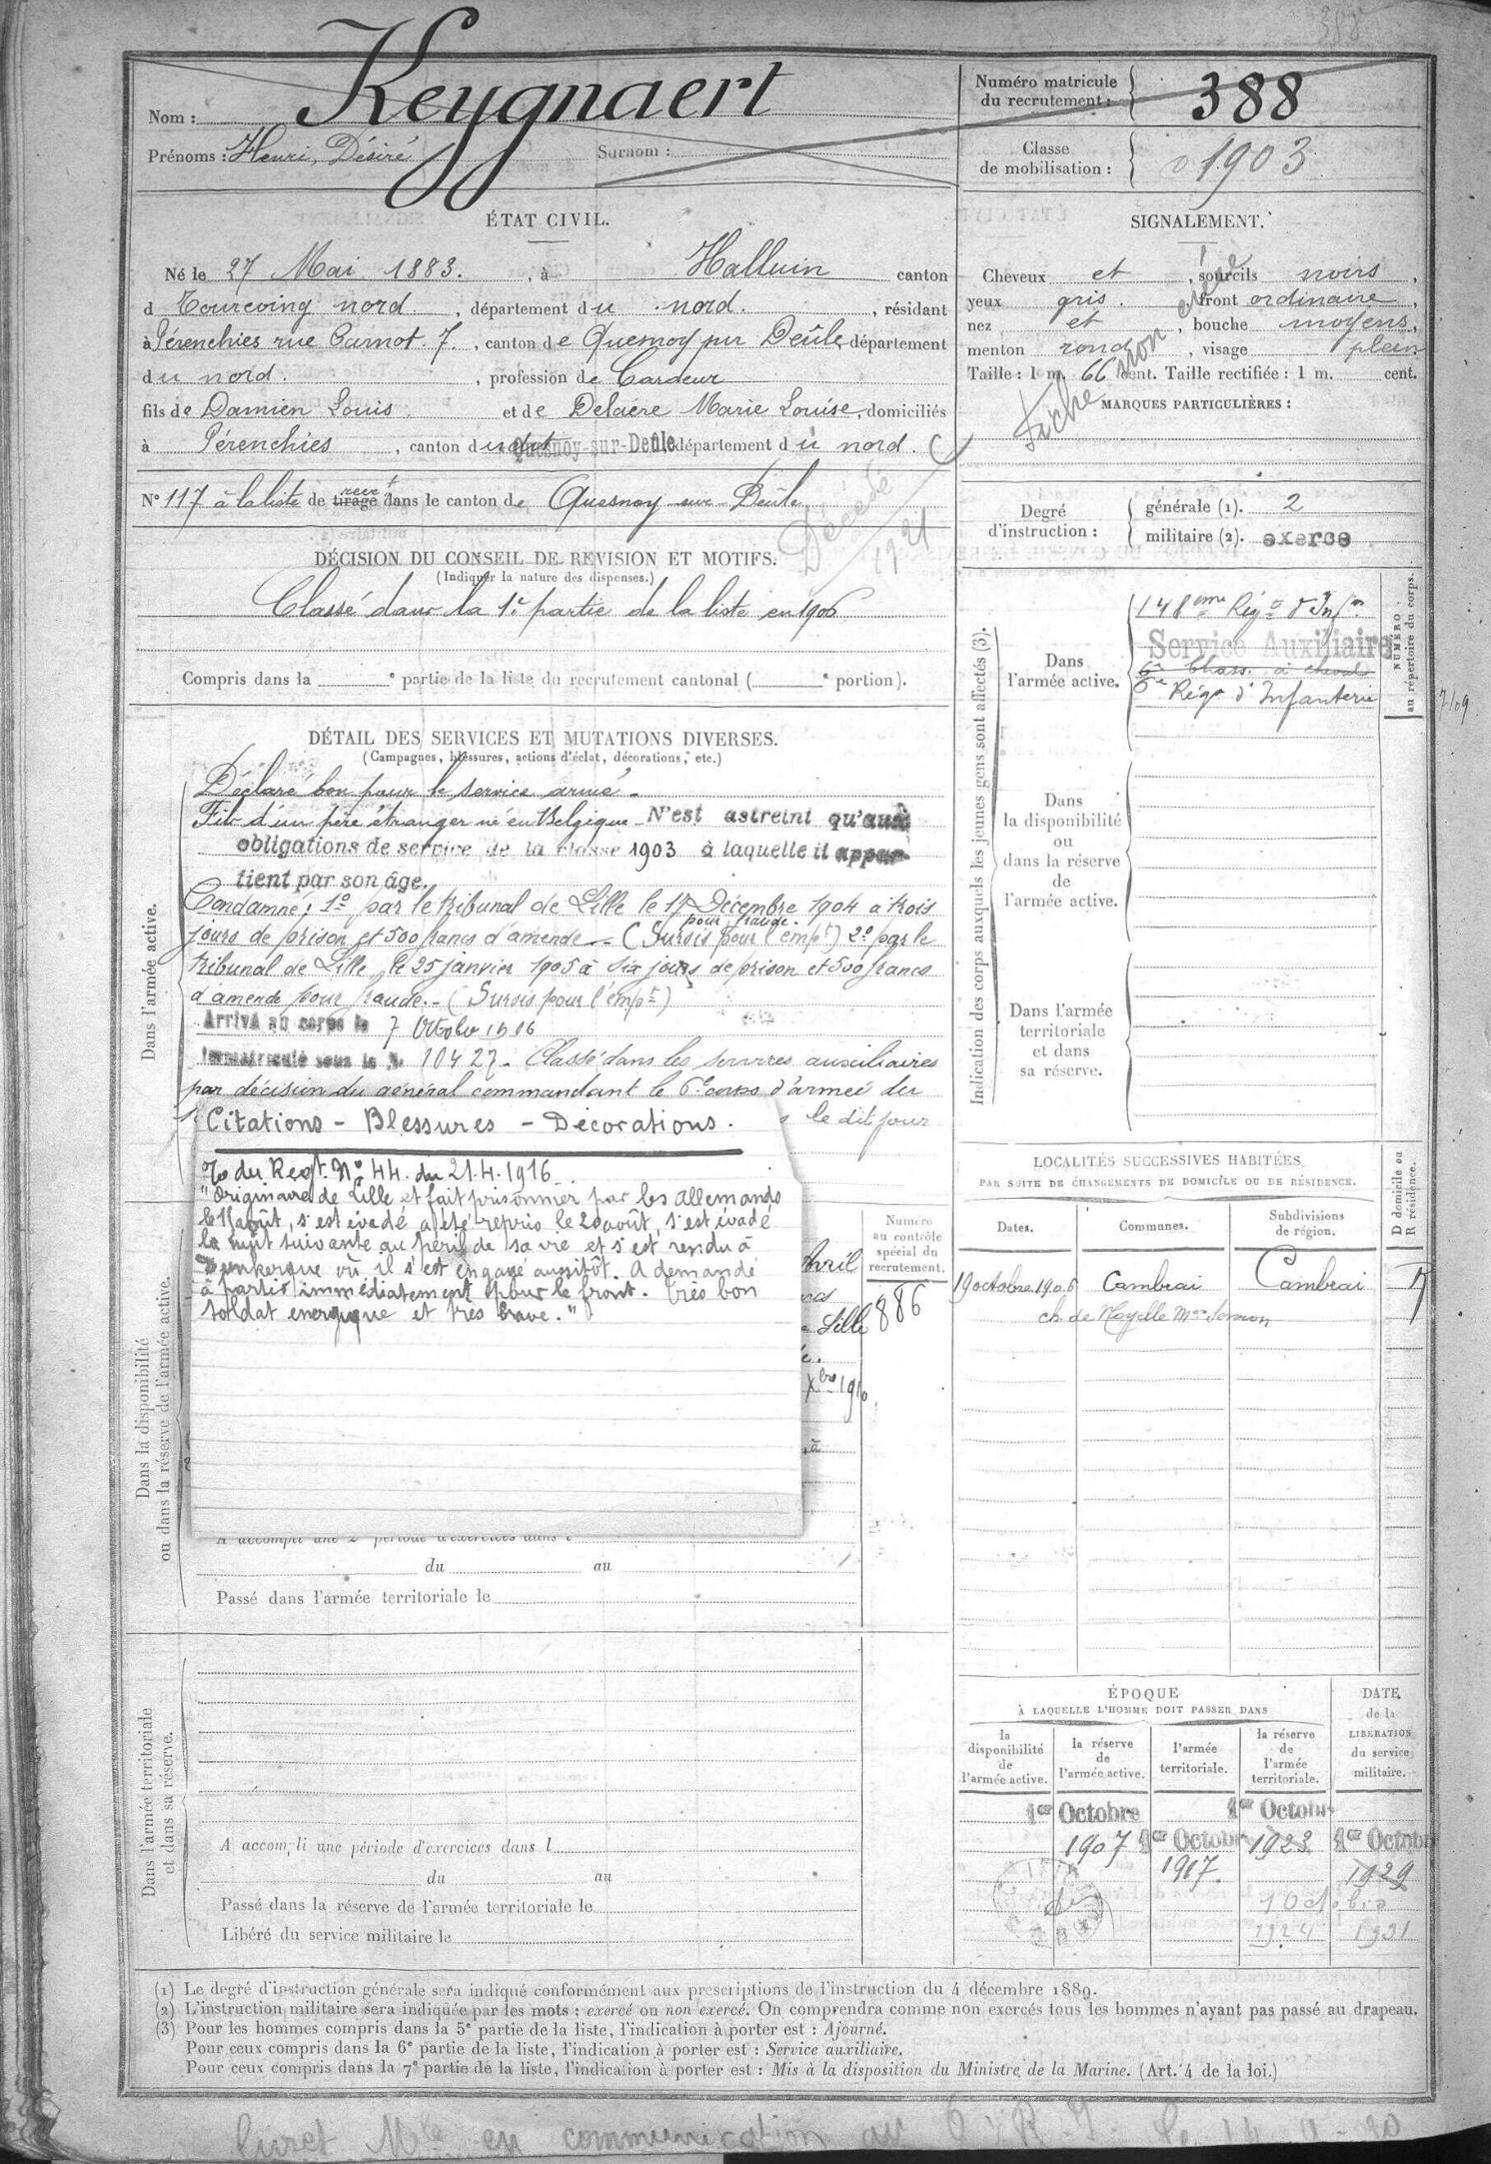 388
Nom : Keygnaert
Prénoms : Henri, Désiré Surnom :
Numéro matricule
du recrutement : 388
Classe
de mobilisation : 1903
ÉTAT CIVIL.
Né le 27 Mai 1883. , à Halluin canton
d Tourcoing nord. , département du nord. , résidant
à Pérenchies rue Carnot 7. , canton de Quesnoy sur Deûle département
du nord. , profession de Cardeur
fils de Damien Louis et de Delaere Marie Louise, domiciliés
à Pérenchies , canton du dit Quesnoy-sur-Deûle département du nord.
N° 117 à la liste de tirage recr.t dans le canton de Quesnoy sur Deûle
Décédé
1921
DÉCISION DU CONSEIL DE REVISION ET MOTIFS.
(Indiquer la nature des dispenses.)
Classé dans la 1e partie de la liste en 1906
Compris dans la e partie de la liste du recrutement cantonal ( e portion).
SIGNALEMENT.
Cheveux et , sourcils noirs ,
yeux gris. , front ordinaire ,
nez et , bouche moyens,
menton rond , visage plein
Taille : 1 m. 66 cent. Taille rectifiée : 1 m. cent.
MARQUES PARTICULIÈRES :
Fiche mon
Degré
d'instruction :
générale (1). 2
militaire (2). exercé
DÉTAIL DES SERVICES ET MUTATIONS DIVERSES.
(Campagnes, blessures, actions d'éclat, décorations, etc.)
Dans l'armée active.
Déclaré bon pour le service armé.
Fils d'un père étranger né en Belgique N'est astreint qu'aux
obligations de service de la classe 1903 à laquelle il appar-
tient par son âge.
Condamné ; 1° par le tribunal de Lille le 17 Décembre 1904 à trois
jours de prison et 500 francs d'amende pour fraude. - (Sursis pour l'empt) 2° par le
tribunal de Lille, le 25 janvier 1905 à six jours de prison et 500 francs
d'amende pour fraude. - (Sursis pour l'empt)
Arrivé au corps le 7 Octobre 1906
Immatriculé sous le N° 10427. Classé dans les services auxiliaires
par décision du général commandant le 6e corps d'armée du
le dit jour
Citations - Blessures - Décorations.
du Regt. No 44 du 21.4.1916
"Originaire de Lille et fait prisonnier par les allemands
le août, s'est évadé a été repris le 20 août, s'est évadé
la nuit suivante au péril de sa vie et s'est rendu à
Dunkerque où il s'est engagé aussitôt. A demandé
à partir immédiatement pour le front. Très bon
soldat énergique et très brave."
Avril
Lille
Xbre 1916
Numéro
au contrôle
spécial du
recrutement.
886
Dans la disponibilité
ou dans la réserve de l'armée active.
A accompli une 2e période d'exercices dans l
du au
Passé dans l'armée territoriale le
Dans l'armée territoriale
et dans sa réserve.
A accompli une période d'exercices dans l
du au
Passé dans la réserve de l'armée territoriale le
Libéré du service militaire le
Indication des corps auxquels les jeunes gens sont affectés (3).
Dans
l'armée active.
148ème Régt d'Infie
Service Auxiliaire
6e Chass. à cheval
6e Régt d'Infanterie
NUMÉRO
au répertoire du corps.
7109
Dans
la disponibilité
ou
dans la réserve
de
l'armée active.
Dans l'armée
territoriale
et dans
sa réserve.
LOCALITÉS SUCCESSIVES HABITÉES
PAR SUITE DE CHANGEMENTS DE DOMICILE OU DE RÉSIDENCE.
Dates. Communes. Subdivisions
de région.
D domicile ou
R résidence.
19 octobre 1906 Cambrai Cambrai R
ch. de Noyelle
ÉPOQUE
À LAQUELLE L'HOMME DOIT PASSER DANS
la
disponibilité
de
l'armée active.
la réserve
de
l'armée active.
l'armée
territoriale.
la réserve
de
l'armée
territoriale.
DATE
de la
LIBÉRATION
du service
militaire.
1er Octobre
1907
1er Octobre
1917.
1er Octobre
1923
1er Octobre
1929
1 Octobre
1924 1931
(1) Le degré d'instruction générale sera indiqué conformément aux prescriptions de l'instruction du 4 décembre 1889.
(2) L'instruction militaire sera indiquée par les mots : exercé ou non exercé. On comprendra comme non exercés tous les hommes n'ayant pas passé au drapeau.
(3) Pour les hommes compris dans la 5e partie de la liste, l'indication à porter est : Ajourné.
Pour ceux compris dans la 6e partie de la liste, l'indication à porter est : Service auxiliaire.
Pour ceux compris dans la 7e partie de la liste, l'indication à porter est : Mis à la disposition du Ministre de la Marine. (Art. 4 de la loi.)
livret Mle en communication au